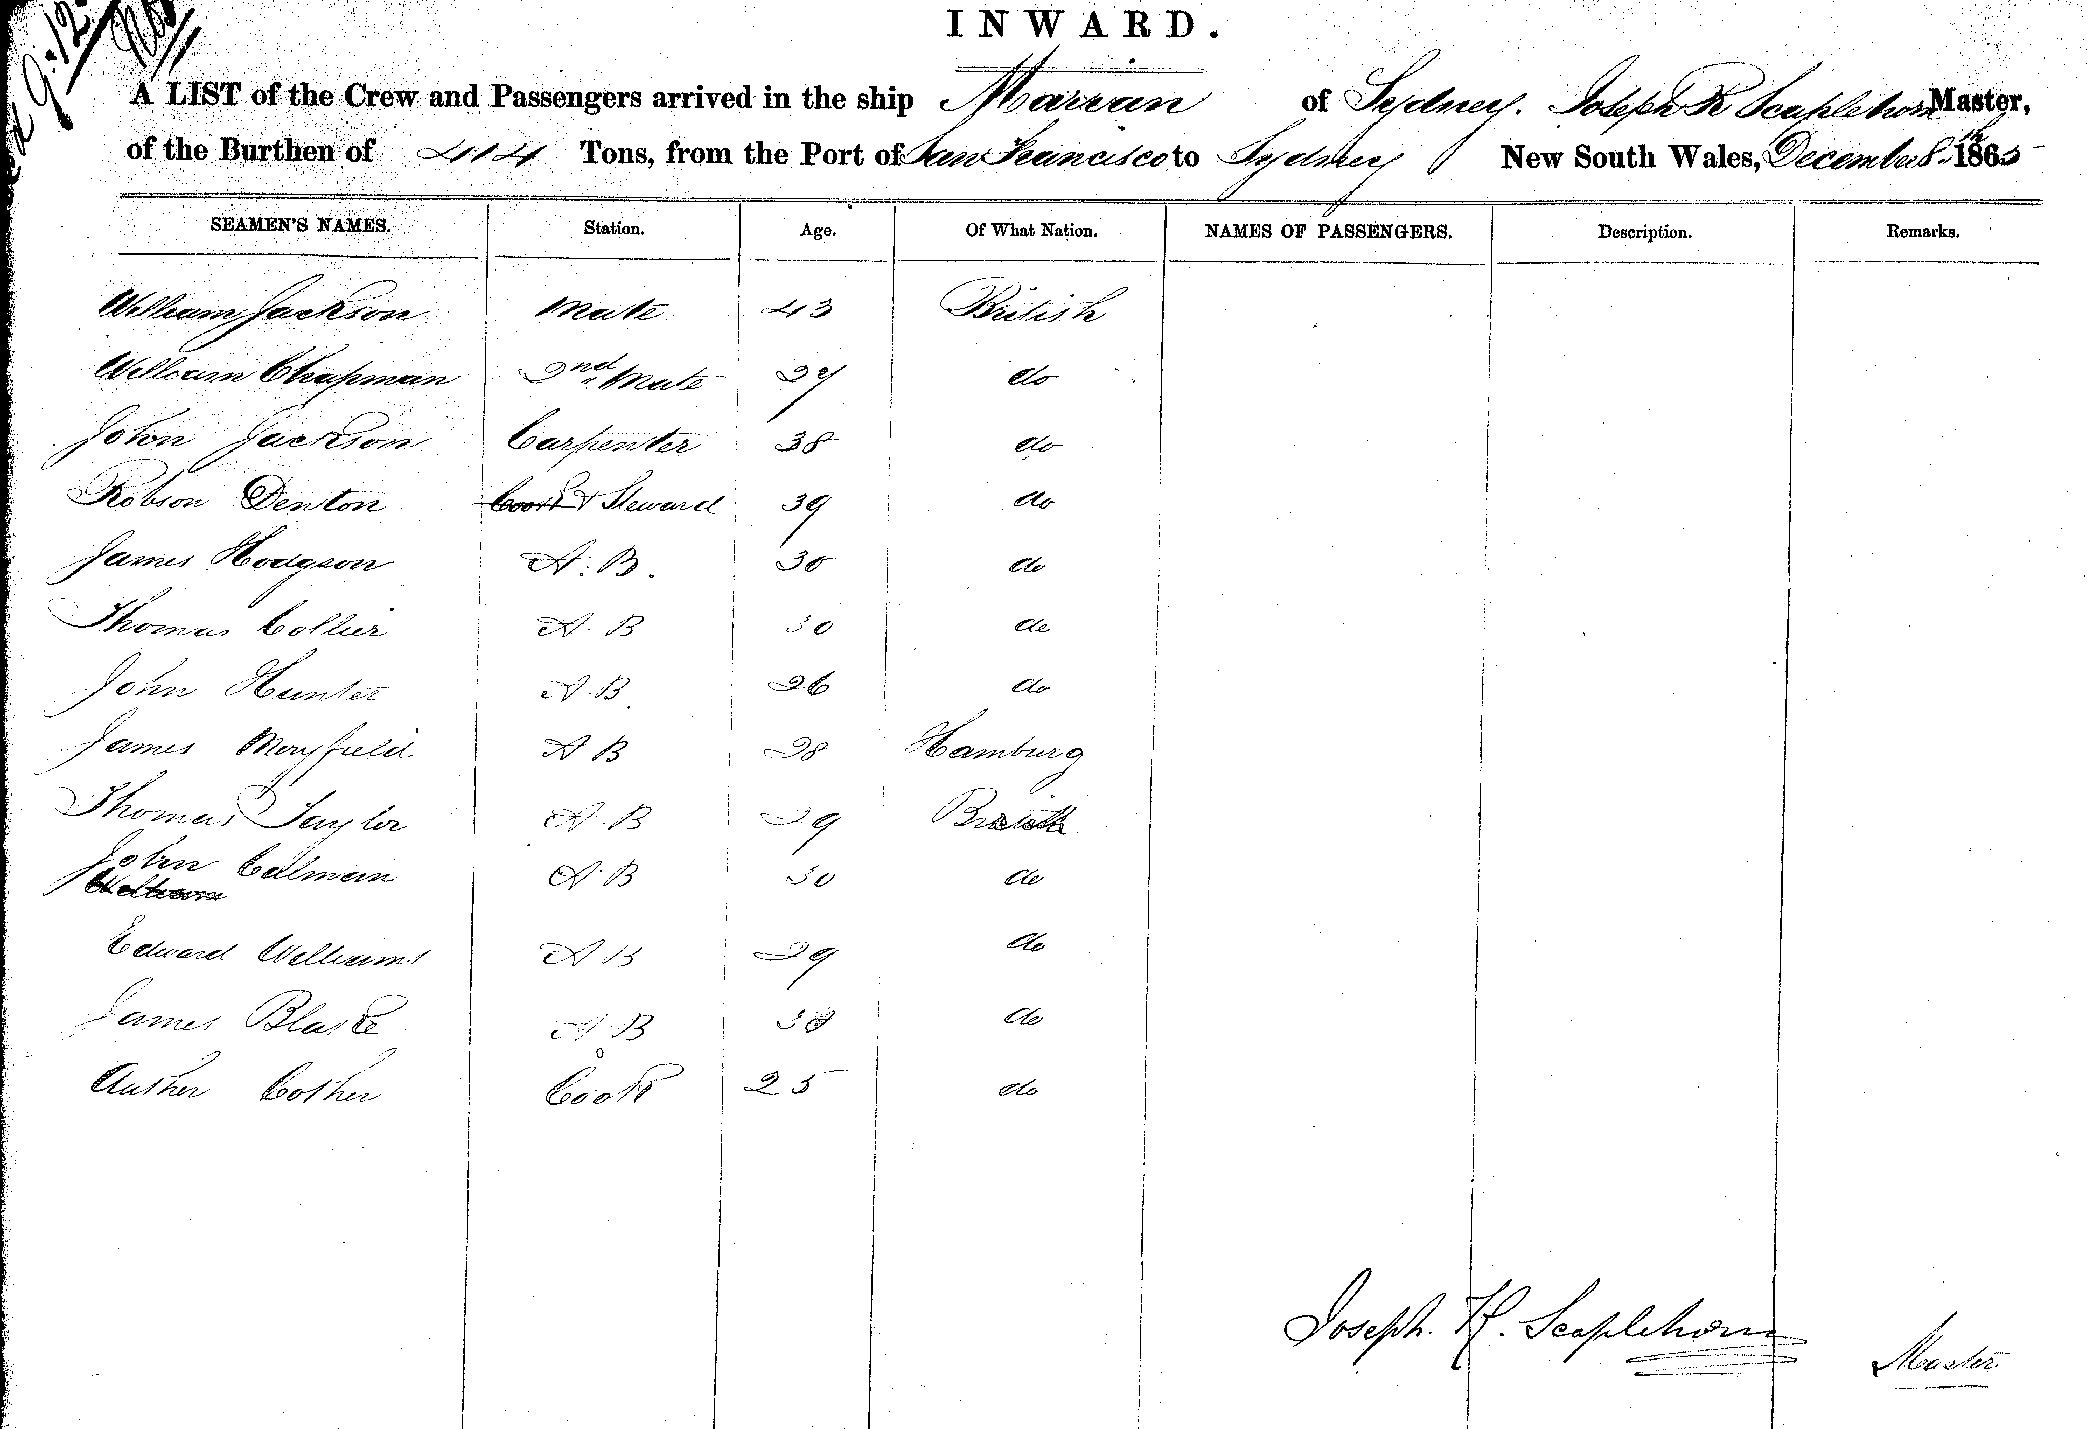 INWARD.
A LIST of the Crew and Passengers arrived in the ship Marian of Sydney. Joseph R Scaplehorn Master,
of the Burthen of 414 Tons, from the Port of San Francisco to Sydney New South Wales, December 8th 1865
SEAMEN'S NAMES. Station. Age. Of What Nation. NAMES OF PASSENGERS. Description. Remarks.
William Jackson Mate 43 British
William Chapman 2nd Mate 27 do
John Jackson Carpenter 38 do
Robson Denton Cook & Steward 39 do
James Hodgson A.B. 30 do
Thomas Collier A.B 30 do
John Hunter A.B. 26 do
James Moryfield A B 28 Hamburg
Thomas Taylor A.B 29 British
John Calman A.B 30 do
William
Edward Williams A B 29 do
James Blake A.B do
Auther Cother Cook 25 do
Joseph. R. Scaplehorn
Master